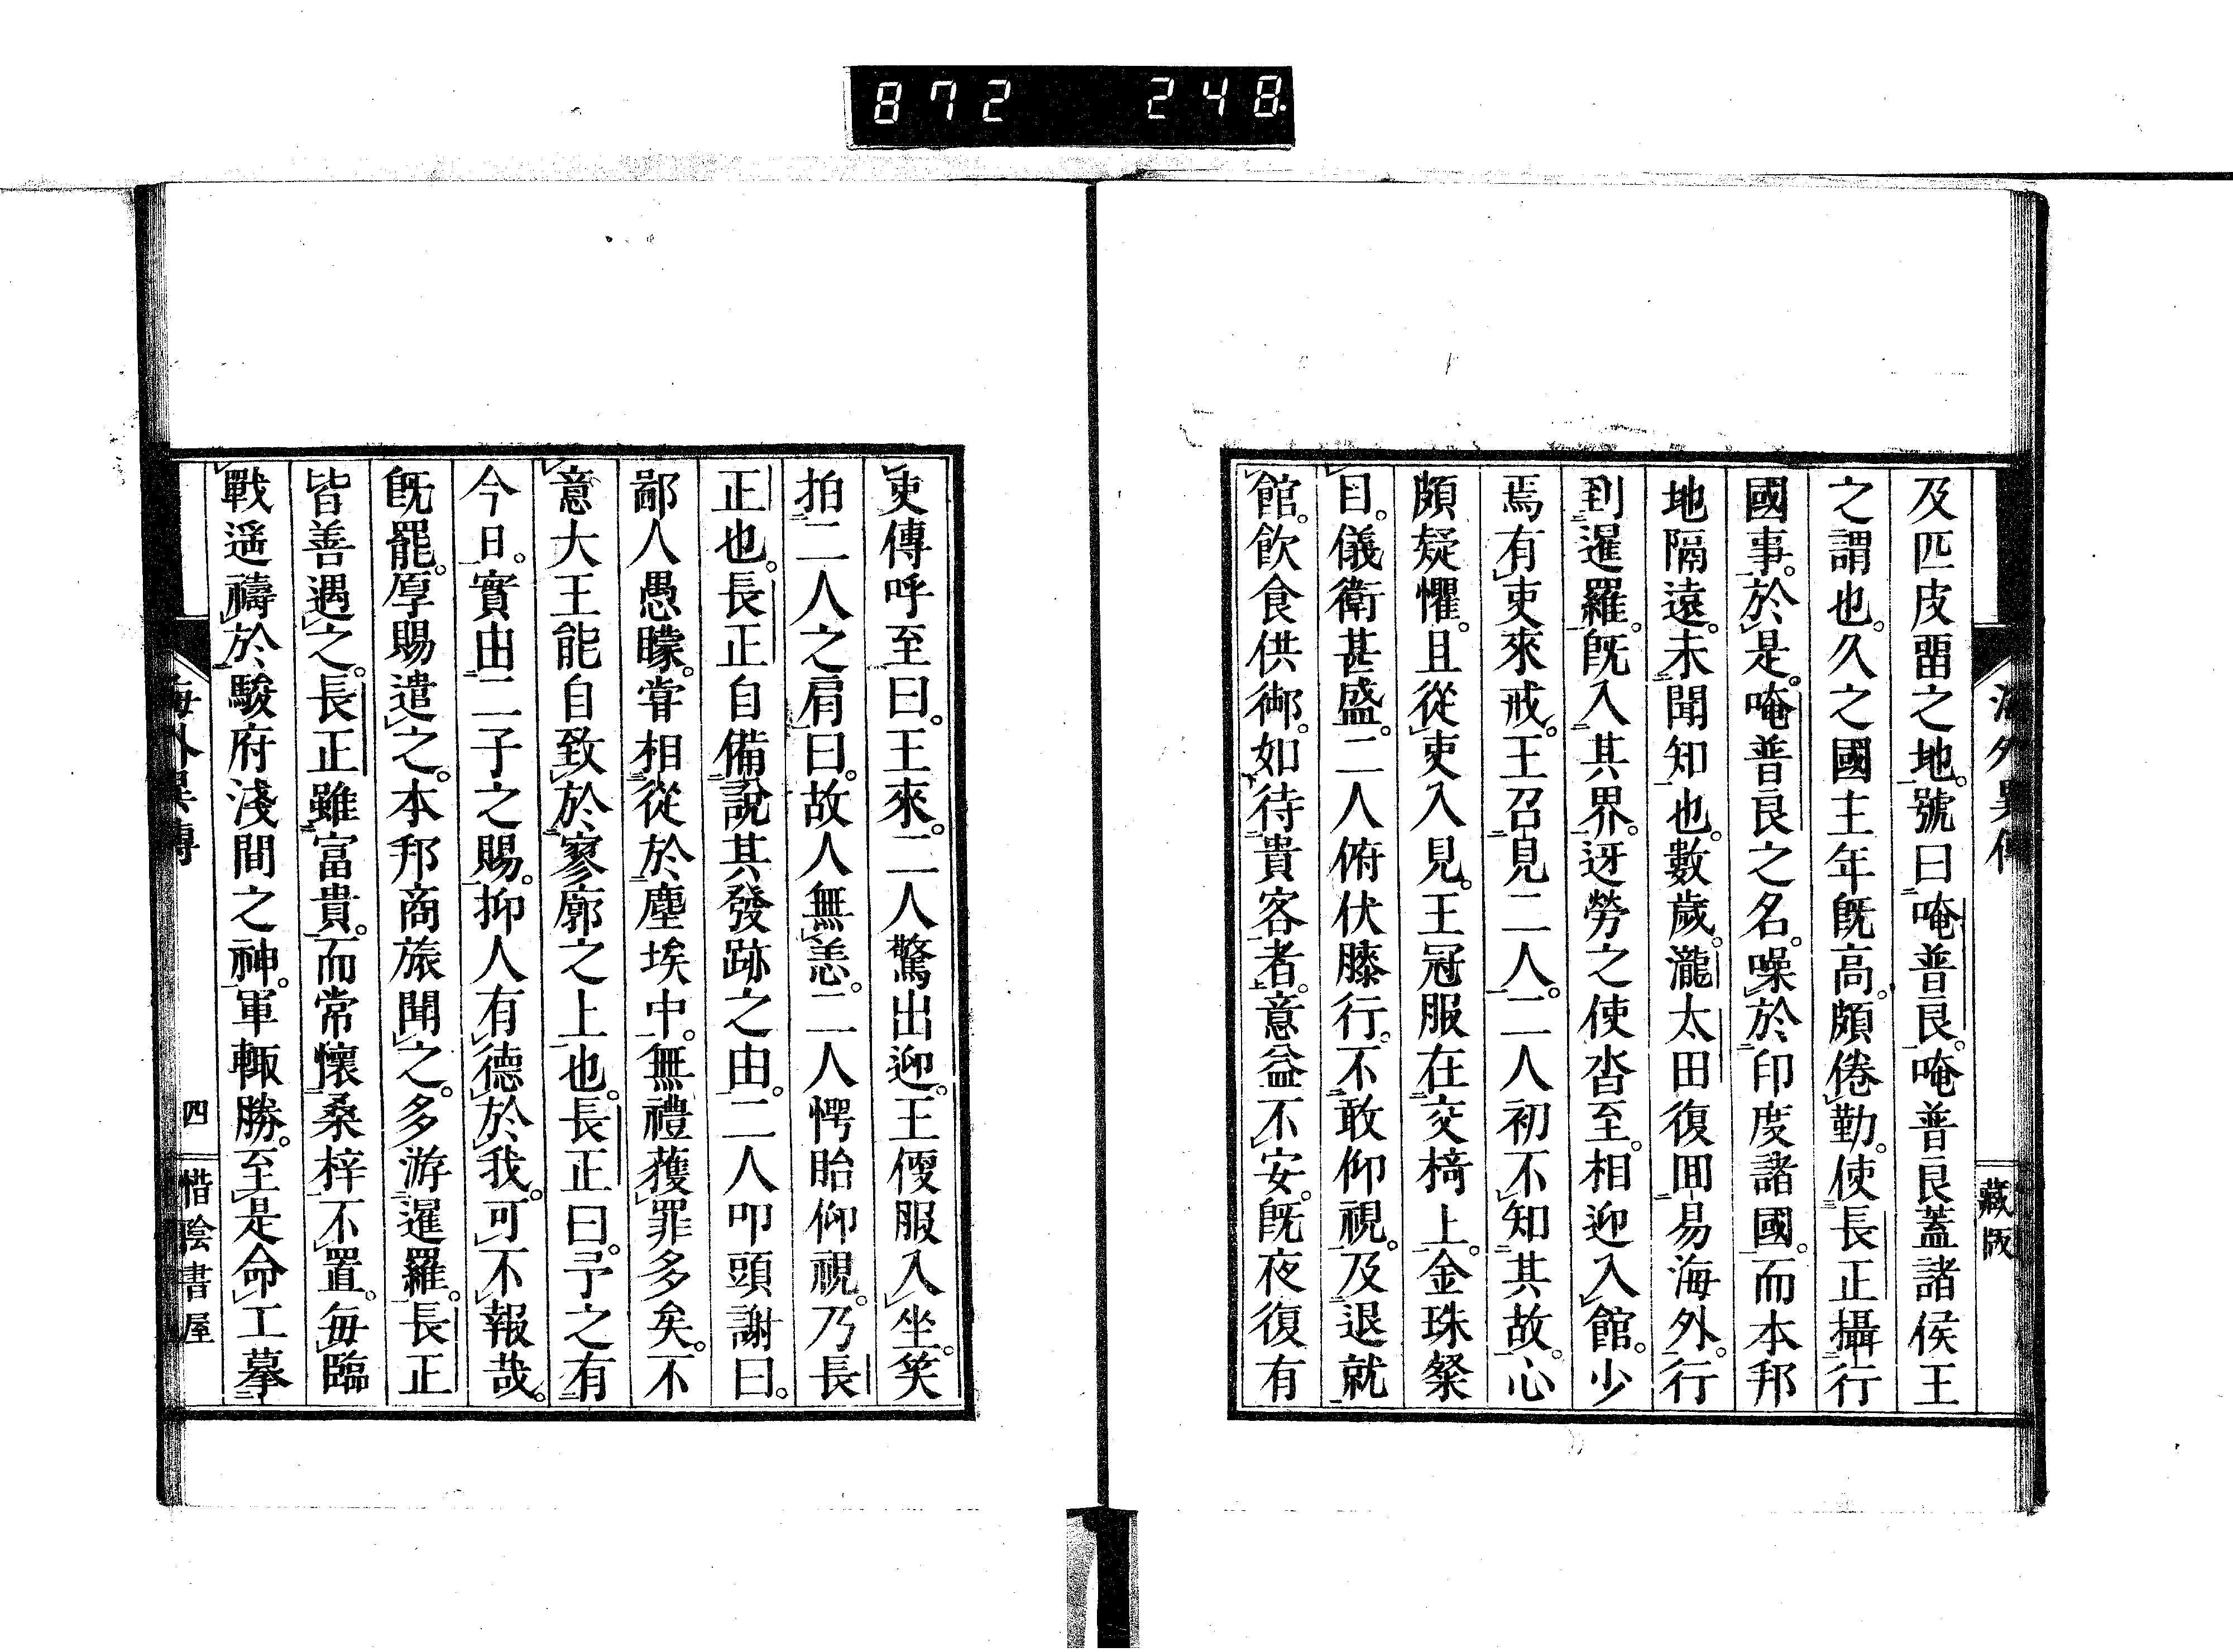 872 248
海外異傳
藏版
及匹皮畱之地。號曰唵普良。唵普良蓋諸侯王
之謂也。久之國主年旣高。頗倦勤。使長正攝行
國事。於是。唵普良之名。噪於印度諸國。而本邦
地隔遠。未聞知也。數歲。瀧太田復回易海外。行
到暹羅。旣入其界。迓勞之使沓至。相迎入館。少
焉有吏來戒。王召見二人。二人初不知其故。心
頗疑懼。且從吏入見。王冠服在交椅上。金珠粲
目。儀衛甚盛。二人俯伏膝行。不敢仰視。及退就
館。飲食供御。如待貴客者。意益不安。旣夜復有
吏傳呼至曰。王來。二人驚出迎。王便服入坐。笑
拍二人之肩曰。故人無恙。二人愕眙仰視。乃長
正也。長正自備說其發跡之由。二人叩頭謝曰。
鄙人愚矇。嘗相從於塵埃中。無禮獲罪多矣。不
意大王能自致於寥廓之上也。長正曰。予之有
今日。實由二子之賜。抑人有德於我。可不報哉。
旣罷。厚賜遣之。本邦商旅聞之。多游暹羅。長正
皆善遇之。長正雖富貴。而常懷桑梓不置。每臨
戰遥禱於駿府淺間之神。軍輒勝。至是命工摹
海外異傳
四
惜陰書屋